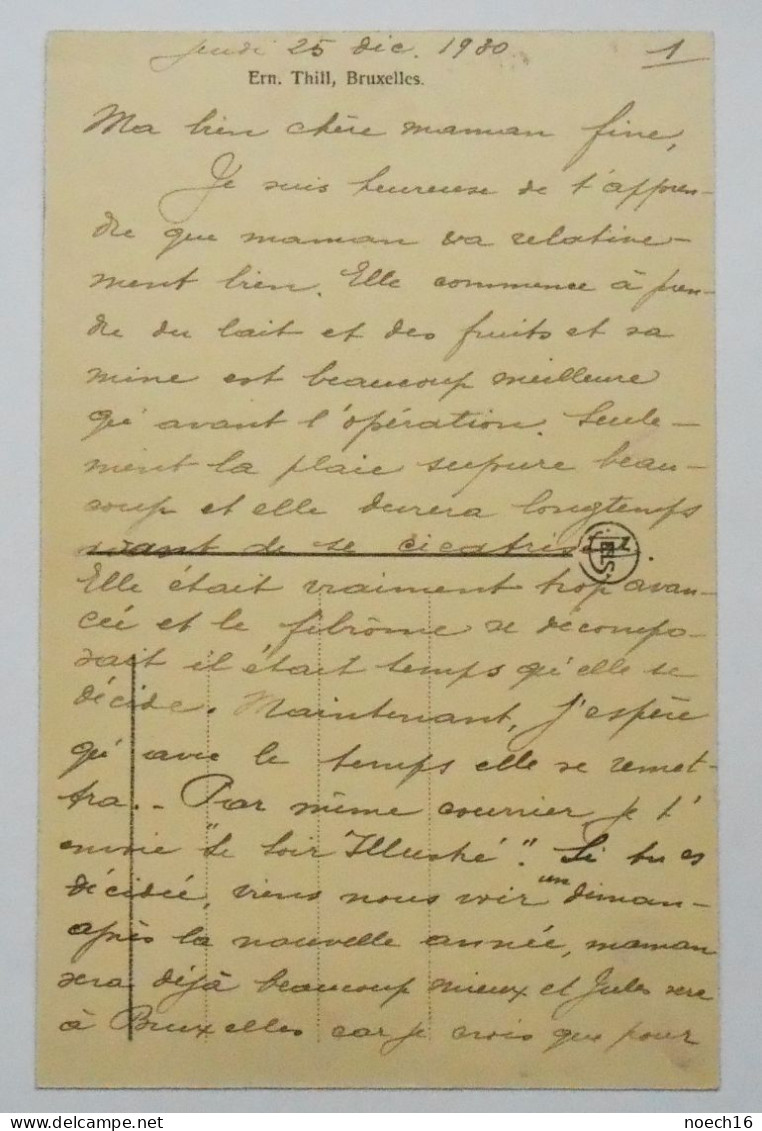 Jeudi 25 dec. 1930 1
Ern. Thill, Bruxelles.
Ma bien chère maman fine,
Je suis heureuse de t'appren-
dre que maman va relative-
ment bien. Elle commence à pren-
dre du lait et des fruits et sa
mine est beaucoup meilleure
qu'avant l'opération. Seule-
ment la plaie supure beau-
coup et elle durera longtemps
avant de se cicatriser.
NELS
Elle était vraiment trop avan-
cée et le fibrôme se décompo-
sait il était temps qu'elle se
décide. Maintenant, j'espère
qu'avec le temps elle se remet-
tra.- Par même courrier je t'
envoie "Le Soir Illustré". Si tu es
décidée, viens nous voir un diman-
après la nouvelle année, maman
sera déjà beaucoup mieux et Jules sera
à Bruxelles car je crois que pour
noech16